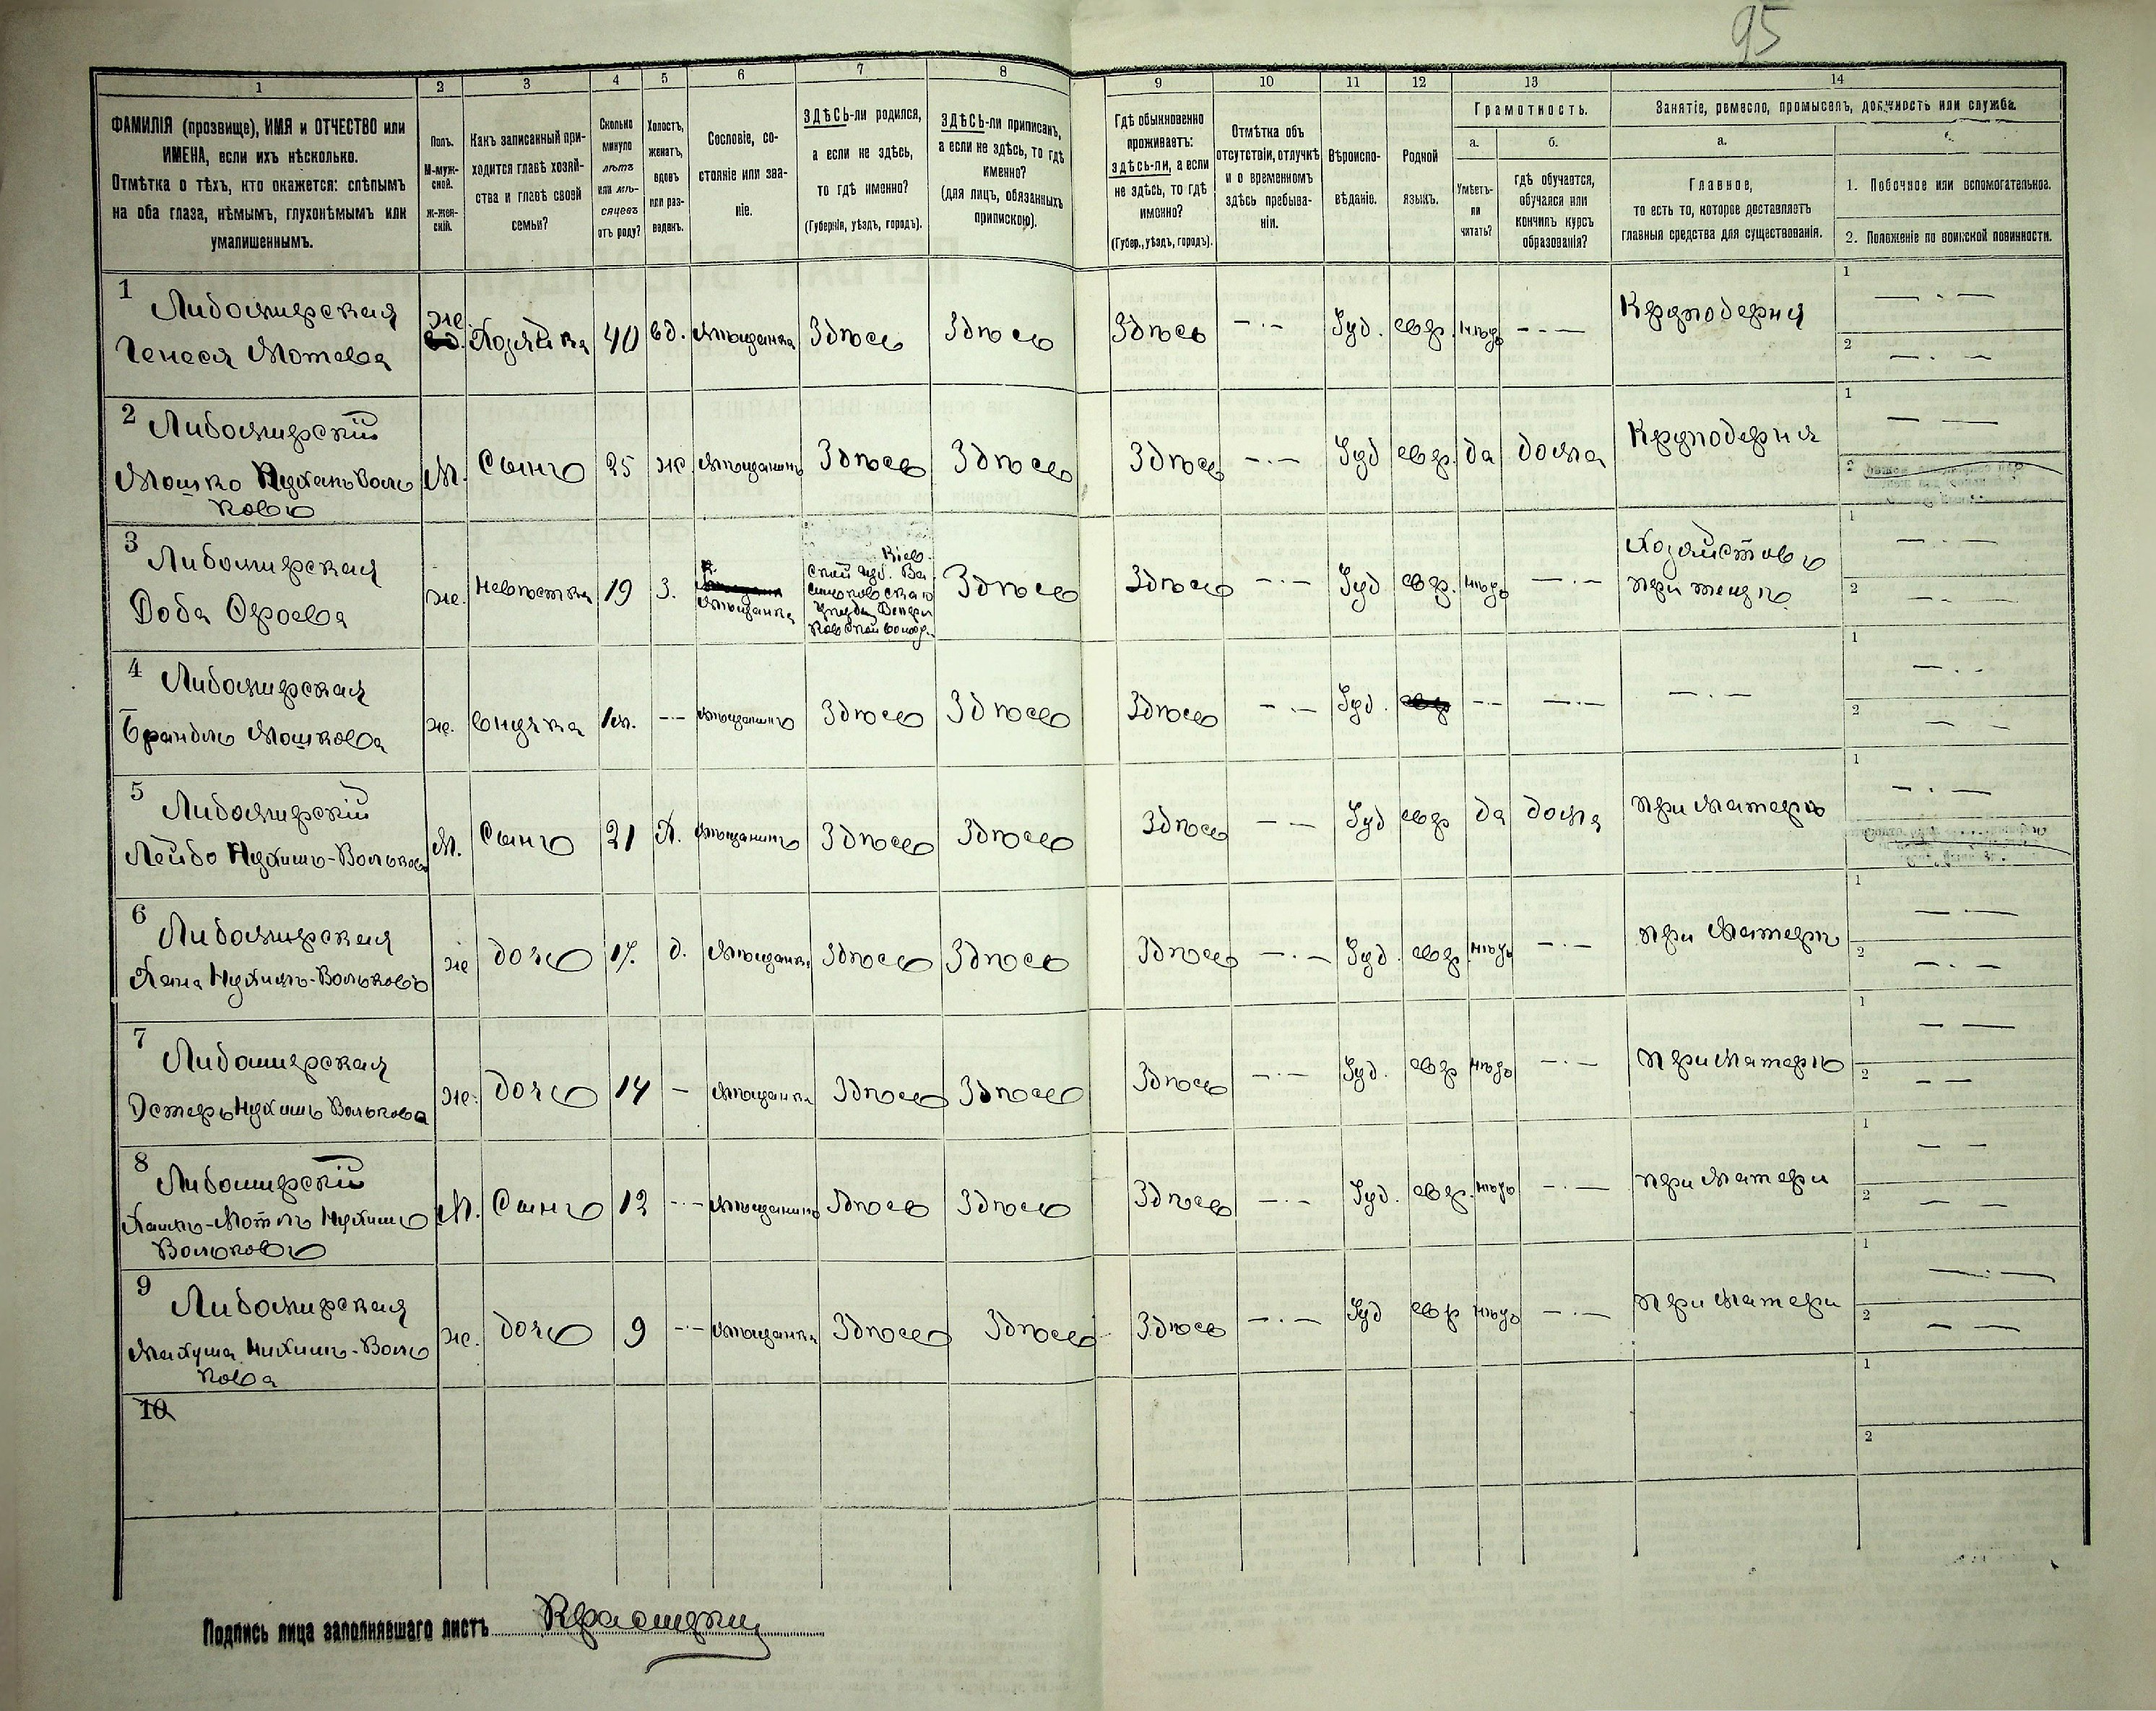 95
1 2 3 4 5 6 7 8 9 10 11 12 13 14
ФАМИЛІЯ (прозвище), ИМЯ и ОТЧЕСТВО или
ИМЕНА, если ихъ нѣсколько.
Отмѣтка о тѣхъ, кто окажется: слѣпымъ
на оба глаза, нѣмымъ, глухонѣмымъ или
умалишеннымъ.
Полъ.
М-муж-
ской.
Ж-жен-
скій.
Какъ записанный при-
ходится главѣ хозяй-
ства и главѣ своей
семьи?
Сколько
минуло
лѣтъ
или мѣ-
сяцевъ
отъ роду?
Холостъ,
женатъ,
вдовъ
или раз-
веденъ.
Сословіе, со-
стояніе или зва-
ніе.
ЗДѢСЬ-ли родился,
а если не здѣсь,
то гдѣ именно?
(Губернія, уѣздъ, городъ).
ЗДѢСЬ-ли приписанъ,
а если не здѣсь, то гдѣ
именно?
(для лицъ, обязанныхъ
припискою).
Гдѣ обыкновенно
проживаетъ:
здѣсь-ли, а если
не здѣсь, то гдѣ
именно?
(Губер., уѣздъ, городъ).
Отмѣтка объ
отсутствіи, отлучкѣ
и о временномъ
здѣсь пребыва-
ніи.
Вѣроиспо-
вѣданіе.
Родной
языкъ.
Грамотность.
а.
Умѣетъ-
ли
читать?
б.
гдѣ обучается,
обучался или
кончилъ курсъ
образованія?
Занятіе, ремесло, промыселъ, должность или служба.
а.
Главное,
то есть то, которое доставляетъ
главныя средства для существованія.
1. Побочное или вспомогательное.
2. Положеніе по воинской повинности.
1 Любомирская
Генеся Мотева
же Хозяйка 40 вд. мѣщанка Здѣсь Здѣсь Здѣсь —·— Іуд. евр. нѣтъ —·— Круподерня
1 —·—
2 —·—
2 Любомирскій
Мошко Нухимъ Воль
ковъ
М. Сынъ 25 ж мѣщанинъ Здѣсь Здѣсь Здѣсь —·— Іуд евр. да дома Круподерня
1 — —
2
3 Любомирская
Доба Сроева
же. невѣстка 19 З. мѣщанка
Кіев
ской губ. Ва
сильковскаго
уѣзда
Здѣсь Здѣсь —·— Іуд евр. нѣтъ —·—
при тещѣ
1 —·—
2 —·—
4 Любомирская
Брандль Мошкова
же. внучка 1м. —·— мѣщанинъ Здѣсь Здѣсь Здѣсь —·— Іуд. —— —·— —·—
1 —·—
2 — —
5 Любомирскій
Лейбо Нухимъ-Вольковъ
М. Сынъ 21 Х. мѣщанинъ Здѣсь Здѣсь Здѣсь — — Іуд евр да дома при матери
1 —·—
6 Любомирская
Хана Нухимъ-Волькова
же дочь 17. д. мѣщанка Здѣсь Здѣсь Здѣсь —·— Іуд. евр. нѣтъ —·— при матери
1 —·—
2 —·—
7 Любомирская
Эстеръ Нухимъ Волькова
же. дочь 14 — мѣщанка Здѣсь Здѣсь Здѣсь —·— Іуд. евр нѣтъ —·— при матери
1 — —
2 — —
8 Любомирскій
Хаимъ-Мотль Нухимъ
Вольковъ
М. Сынъ 12 —·— мѣщанинъ Здѣсь Здѣсь Здѣсь —·— Іуд. евр. нѣтъ —·— при матери
1 — —
2 — —
9 Любомирская
Нухимъ-Воль
кова
же. дочь 9 —·— мѣщанка Здѣсь Здѣсь Здѣсь —·— Іуд евр нѣтъ —·— при матери
1 —·—
2 — —
10
1
2
Подпись лица заполнявшаго листъ